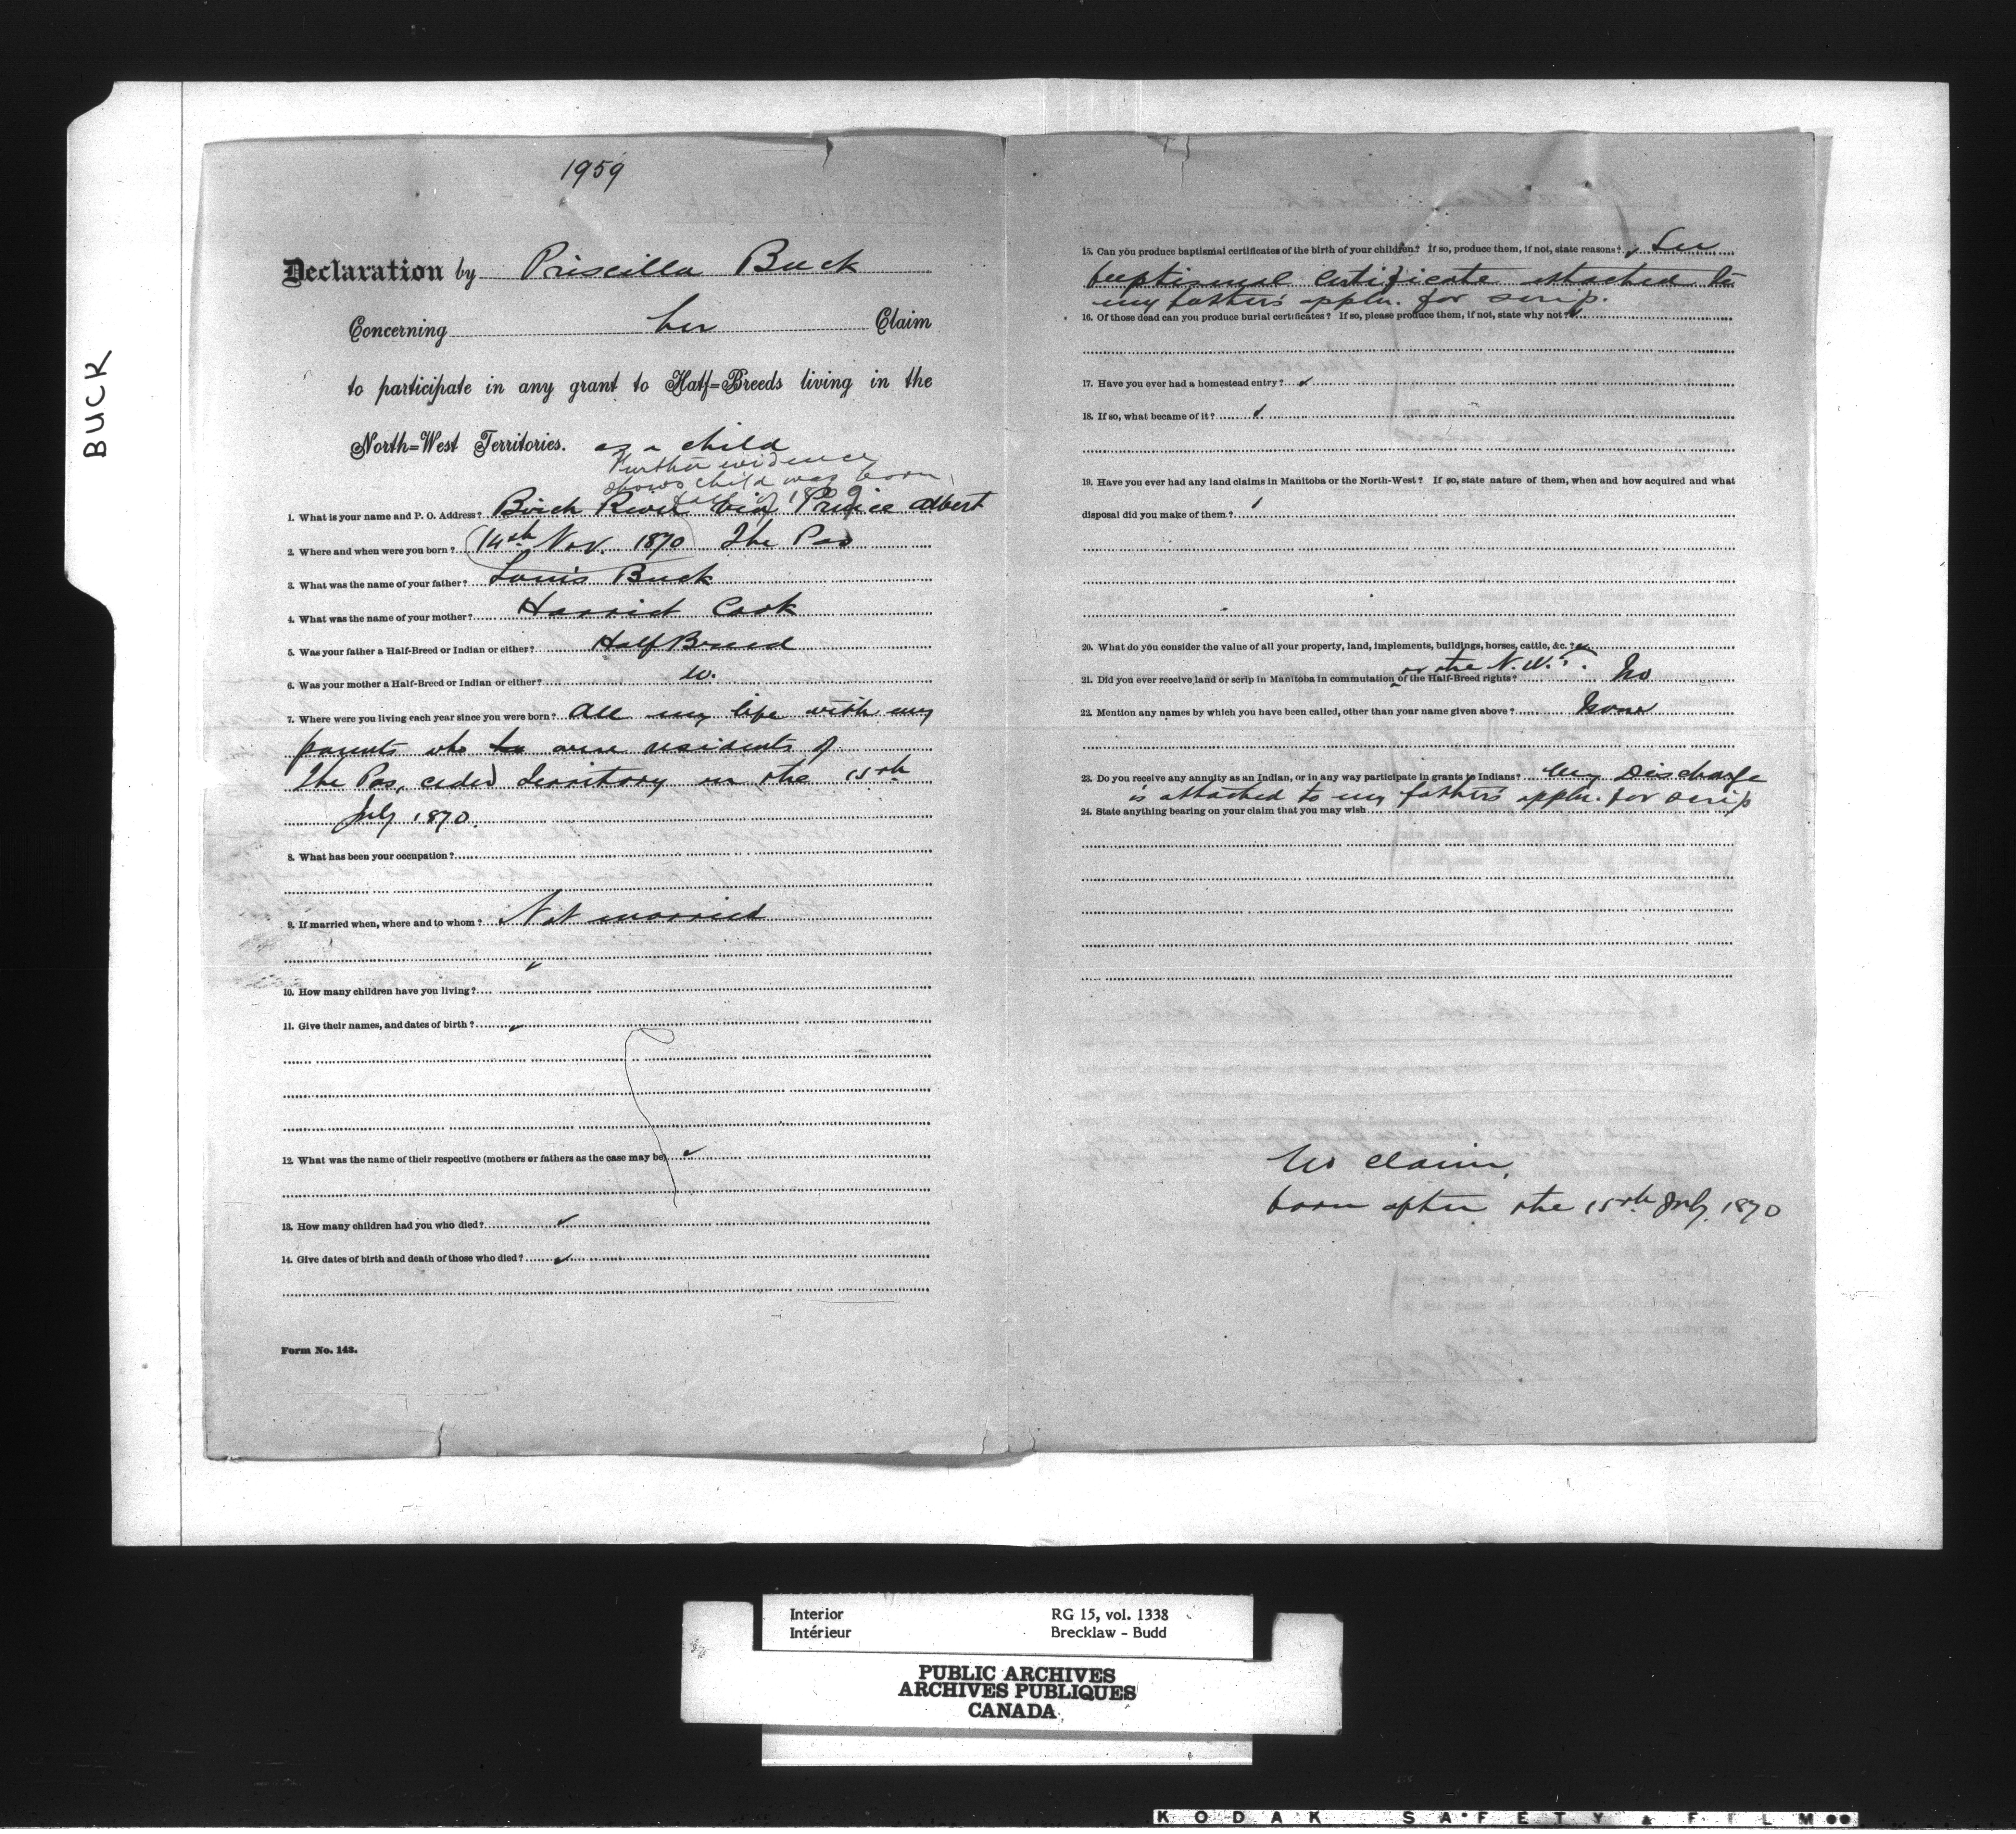 BUCK
1959
Declaration by Priscilla Buck
Concerning her Claim
to participate in any grant to Half-Breeds living in the
North-West Territories. as a child
Further evidence
shows child was born
fall of 1869
1. What is your name and P. O. Address? Birch River via Prince Albert
2. Where and when were you born? (14th Nov. 1870) The Pas
3. What was the name of your father? Louis Buck
4. What was the name of your mother? Harriet Cook
5. Was your father a Half-Breed or Indian or either? Half Breed
6. Was your mother a Half-Breed or Indian or either?
7. Where were you living each year since you were born? All my life with my
parents who were residents of
The Pas, ceded Territory on the 15th
July 1870.
8. What has been your occupation?
9. If married when, where and to whom? Not married
10. How many children have you living?
11. Give their names, and dates of birth?
12. What was the name of their respective (mothers or fathers as the case may be)
13. How many children had you who died?
14. Give dates of birth and death of those who died?
Form No. 143.
15. Can you produce baptismal certificates of the birth of your children? If so, produce them, if not, state reasons? See
baptismal certificate attached to
my father's appln. for scrip.
16. Of those dead can you produce burial certificates? If so, please produce them, if not, state why not?
17. Have you ever had a homestead entry?
18. If so, what became of it?
19. Have you ever had any land claims in Manitoba or the North-West? If so, state nature of them, when and how acquired and what
disposal did you make of them?
20. What do you consider the value of all your property, land, implements, buildings, horses, cattle, &c.?
or the N.W.T.
21. Did you ever receive land or scrip in Manitoba in commutation of the Half-Breed rights? No
22. Mention any names by which you have been called, other than your name given above? None
23. Do you receive any annuity as an Indian, or in any way participate in grants to Indians? My Discharge
is attached to my father's appln. for scrip
24. State anything bearing on your claim that you may wish
No claim,
born after the 15th July 1870
Interior RG 15, vol. 1338
Intérieur Brecklaw - Budd
PUBLIC ARCHIVES
ARCHIVES PUBLIQUES
CANADA
KODAK SAFETY FILM